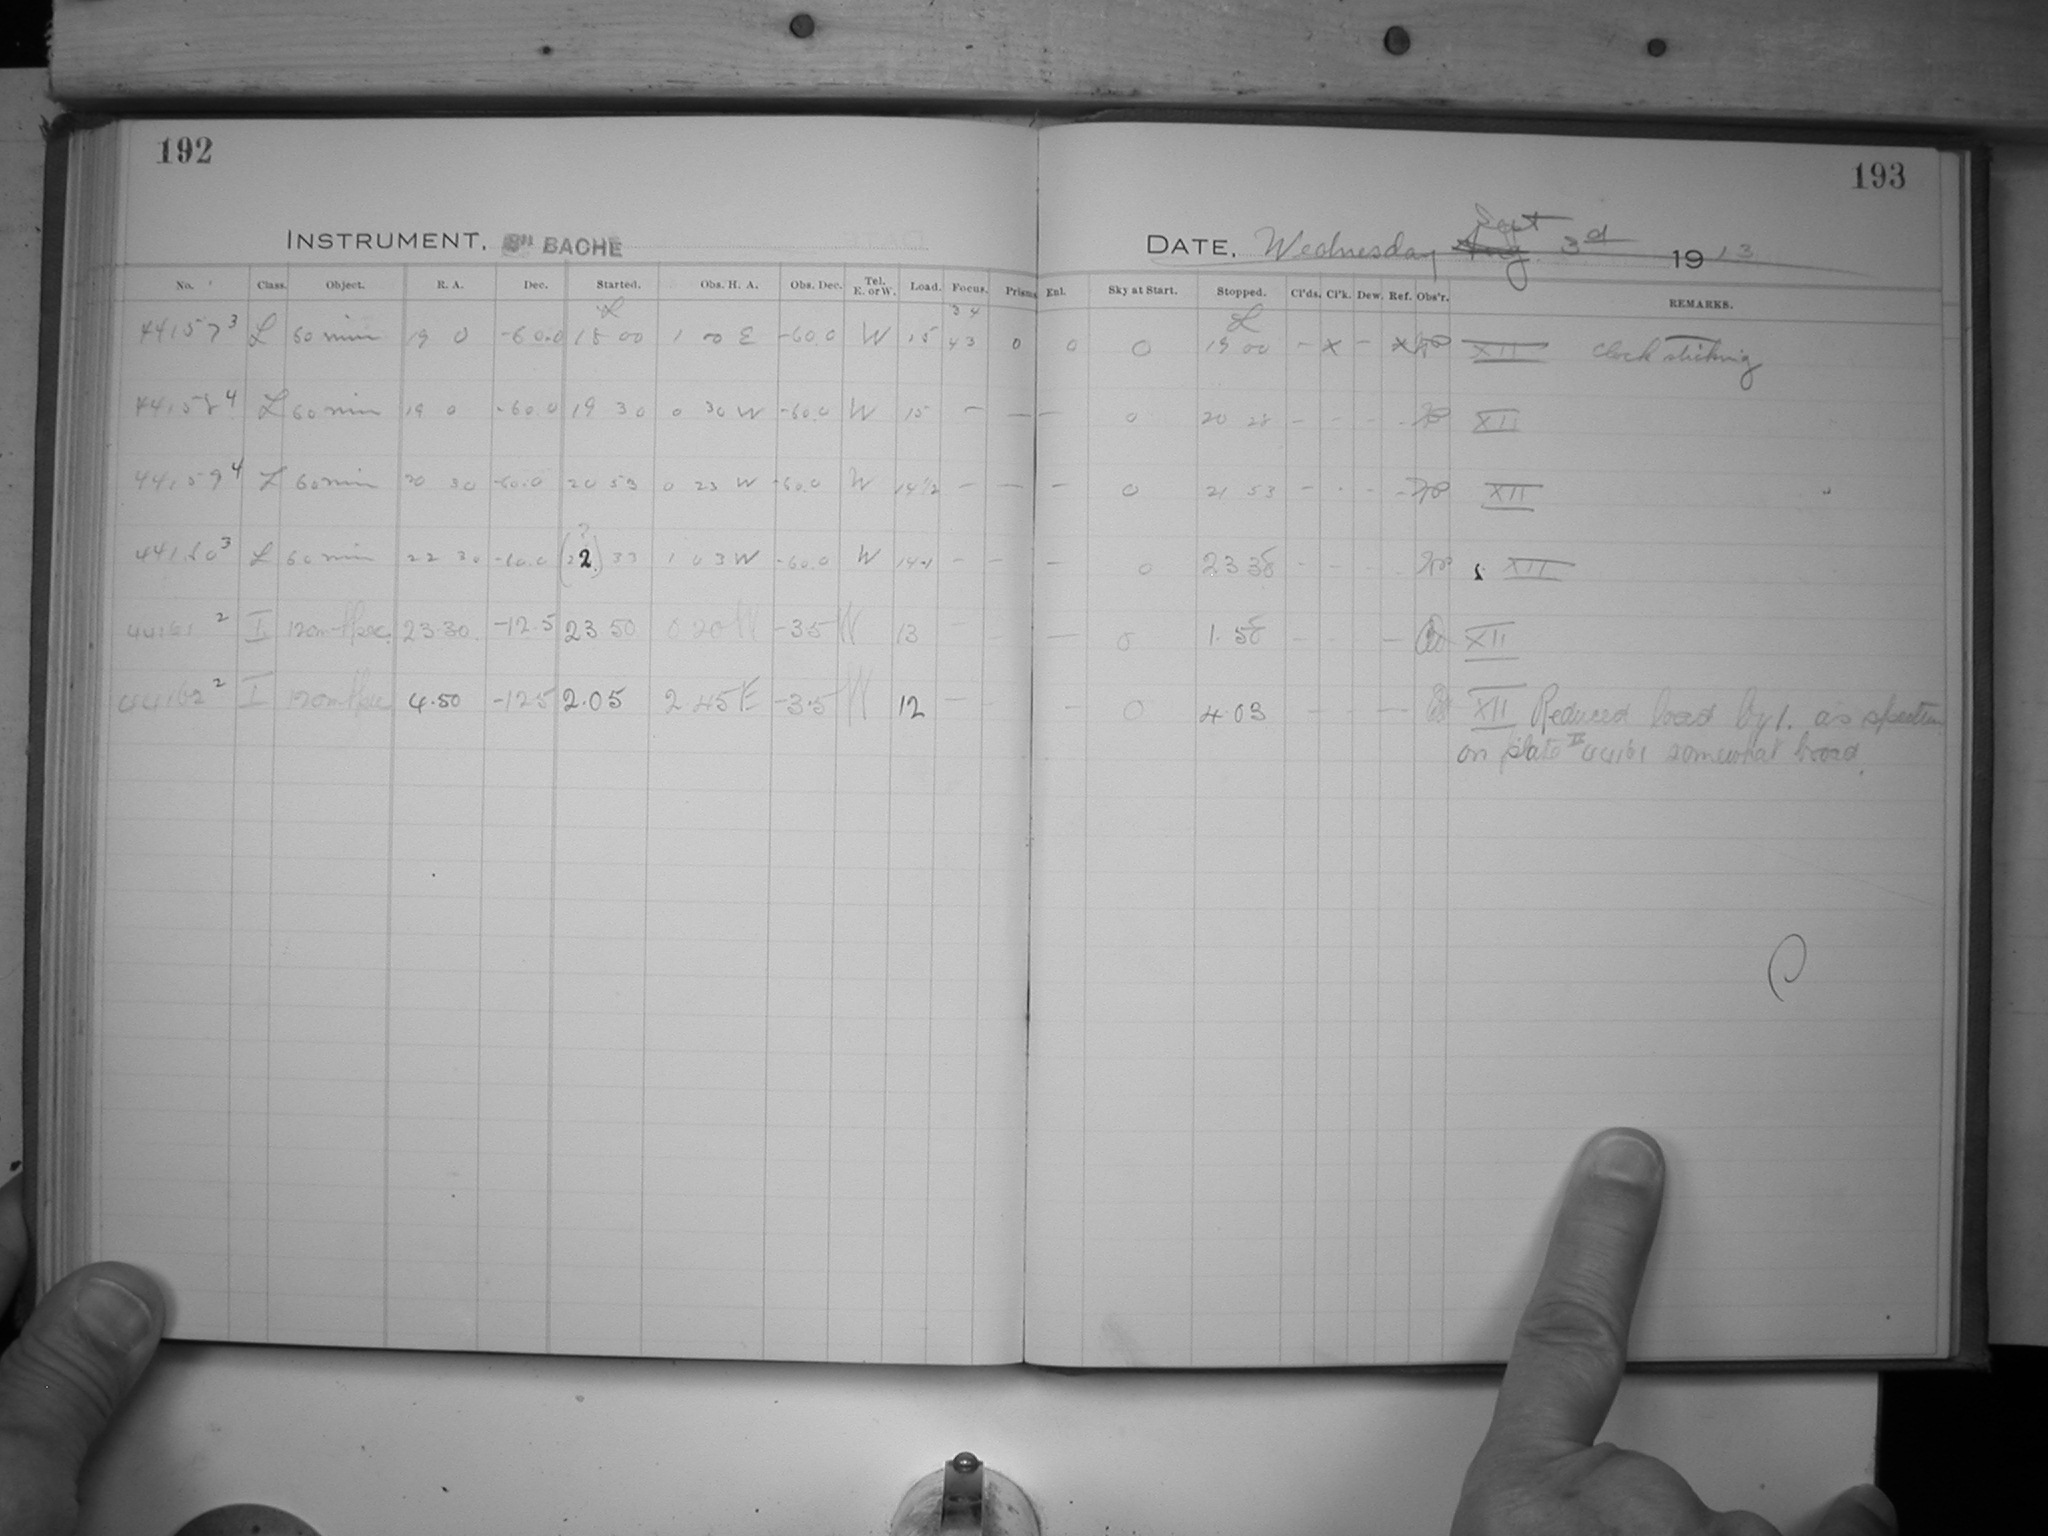 192
193
INSTRUMENT. 8" BACHE
Sept
DATE. Wednesday Aug 3rd 1913
No. Class. Object. R. A. Dec. Started. Obs. H. A. Obs. Dec. Tel. E. or W. Load. Focus. Prisms Enl. Sky at Start. Stopped. Cl'ds. Cl'k. Dew. Ref. Obs'r. REMARKS.
44157 3 L 60 min 19 0 -60.0 18 00 1 00 E -60.0 W 15 43 0 0 0 19 00 - x - x XII clock sticking
44158 4 L 60 min 19 0 -60.0 19 30 0 30 W -60.0 W 15 - — — 0 20 28 - - - - XII
44159 4 L 60 min 20 30 -60.0 20 53 0 23 W -60.0 W 14 1/2 - — - 0 21 53 - - - - XII
44160 3 L 60 min 22 30 -60.0 (22) 33 1 03 W -60.0 W 14 - - — 0 23 38 - - - - XII
44161 2 I 23.30 -12.5 23.50 0 20 W -35 W 13 - - — 0 1.58 - - - - XII
44162 2 I 4.50 -12.5 2.05 2 45 E -3.5 W 12 - - - 0 4.03 - - - - XII Reduced load by 1. as spectrum
on plate 44161 somewhat broad.